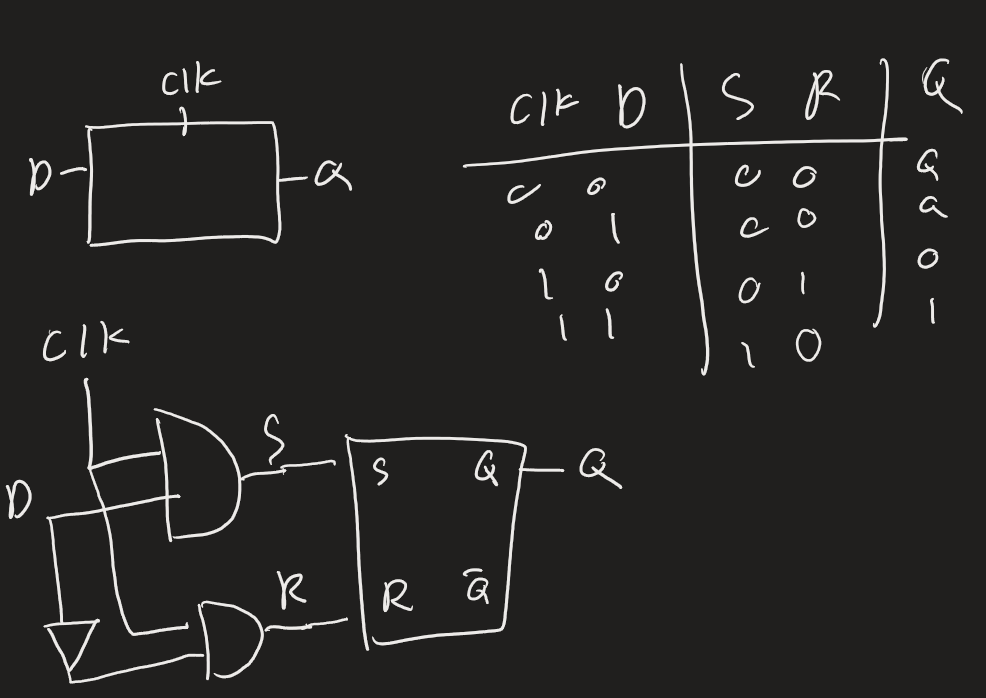 Clk
D Q
Clk D S R Q
0 0 0 0 Q
0 1 0 0 Q
1 0 0 1 0
1 1 1 0 1
Clk
S
D
S Q Q
R
R Q̅